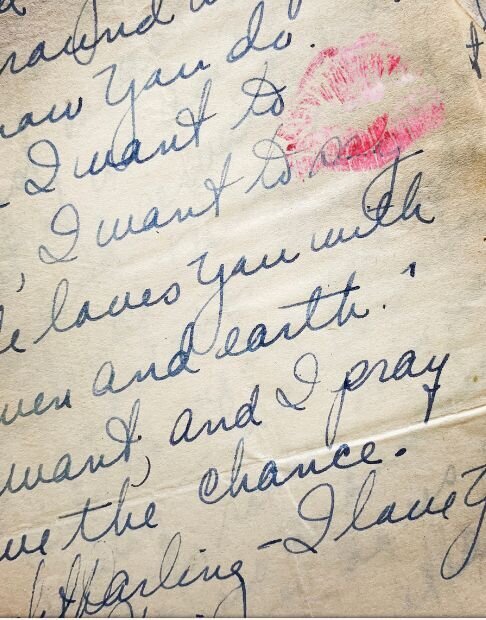 around
how you do.
- I want to
, I want to say,
loves you with
and earth."
want, and I pray
the chance.
Darling - I love